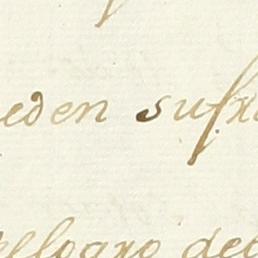 eden sufr
ellogro del